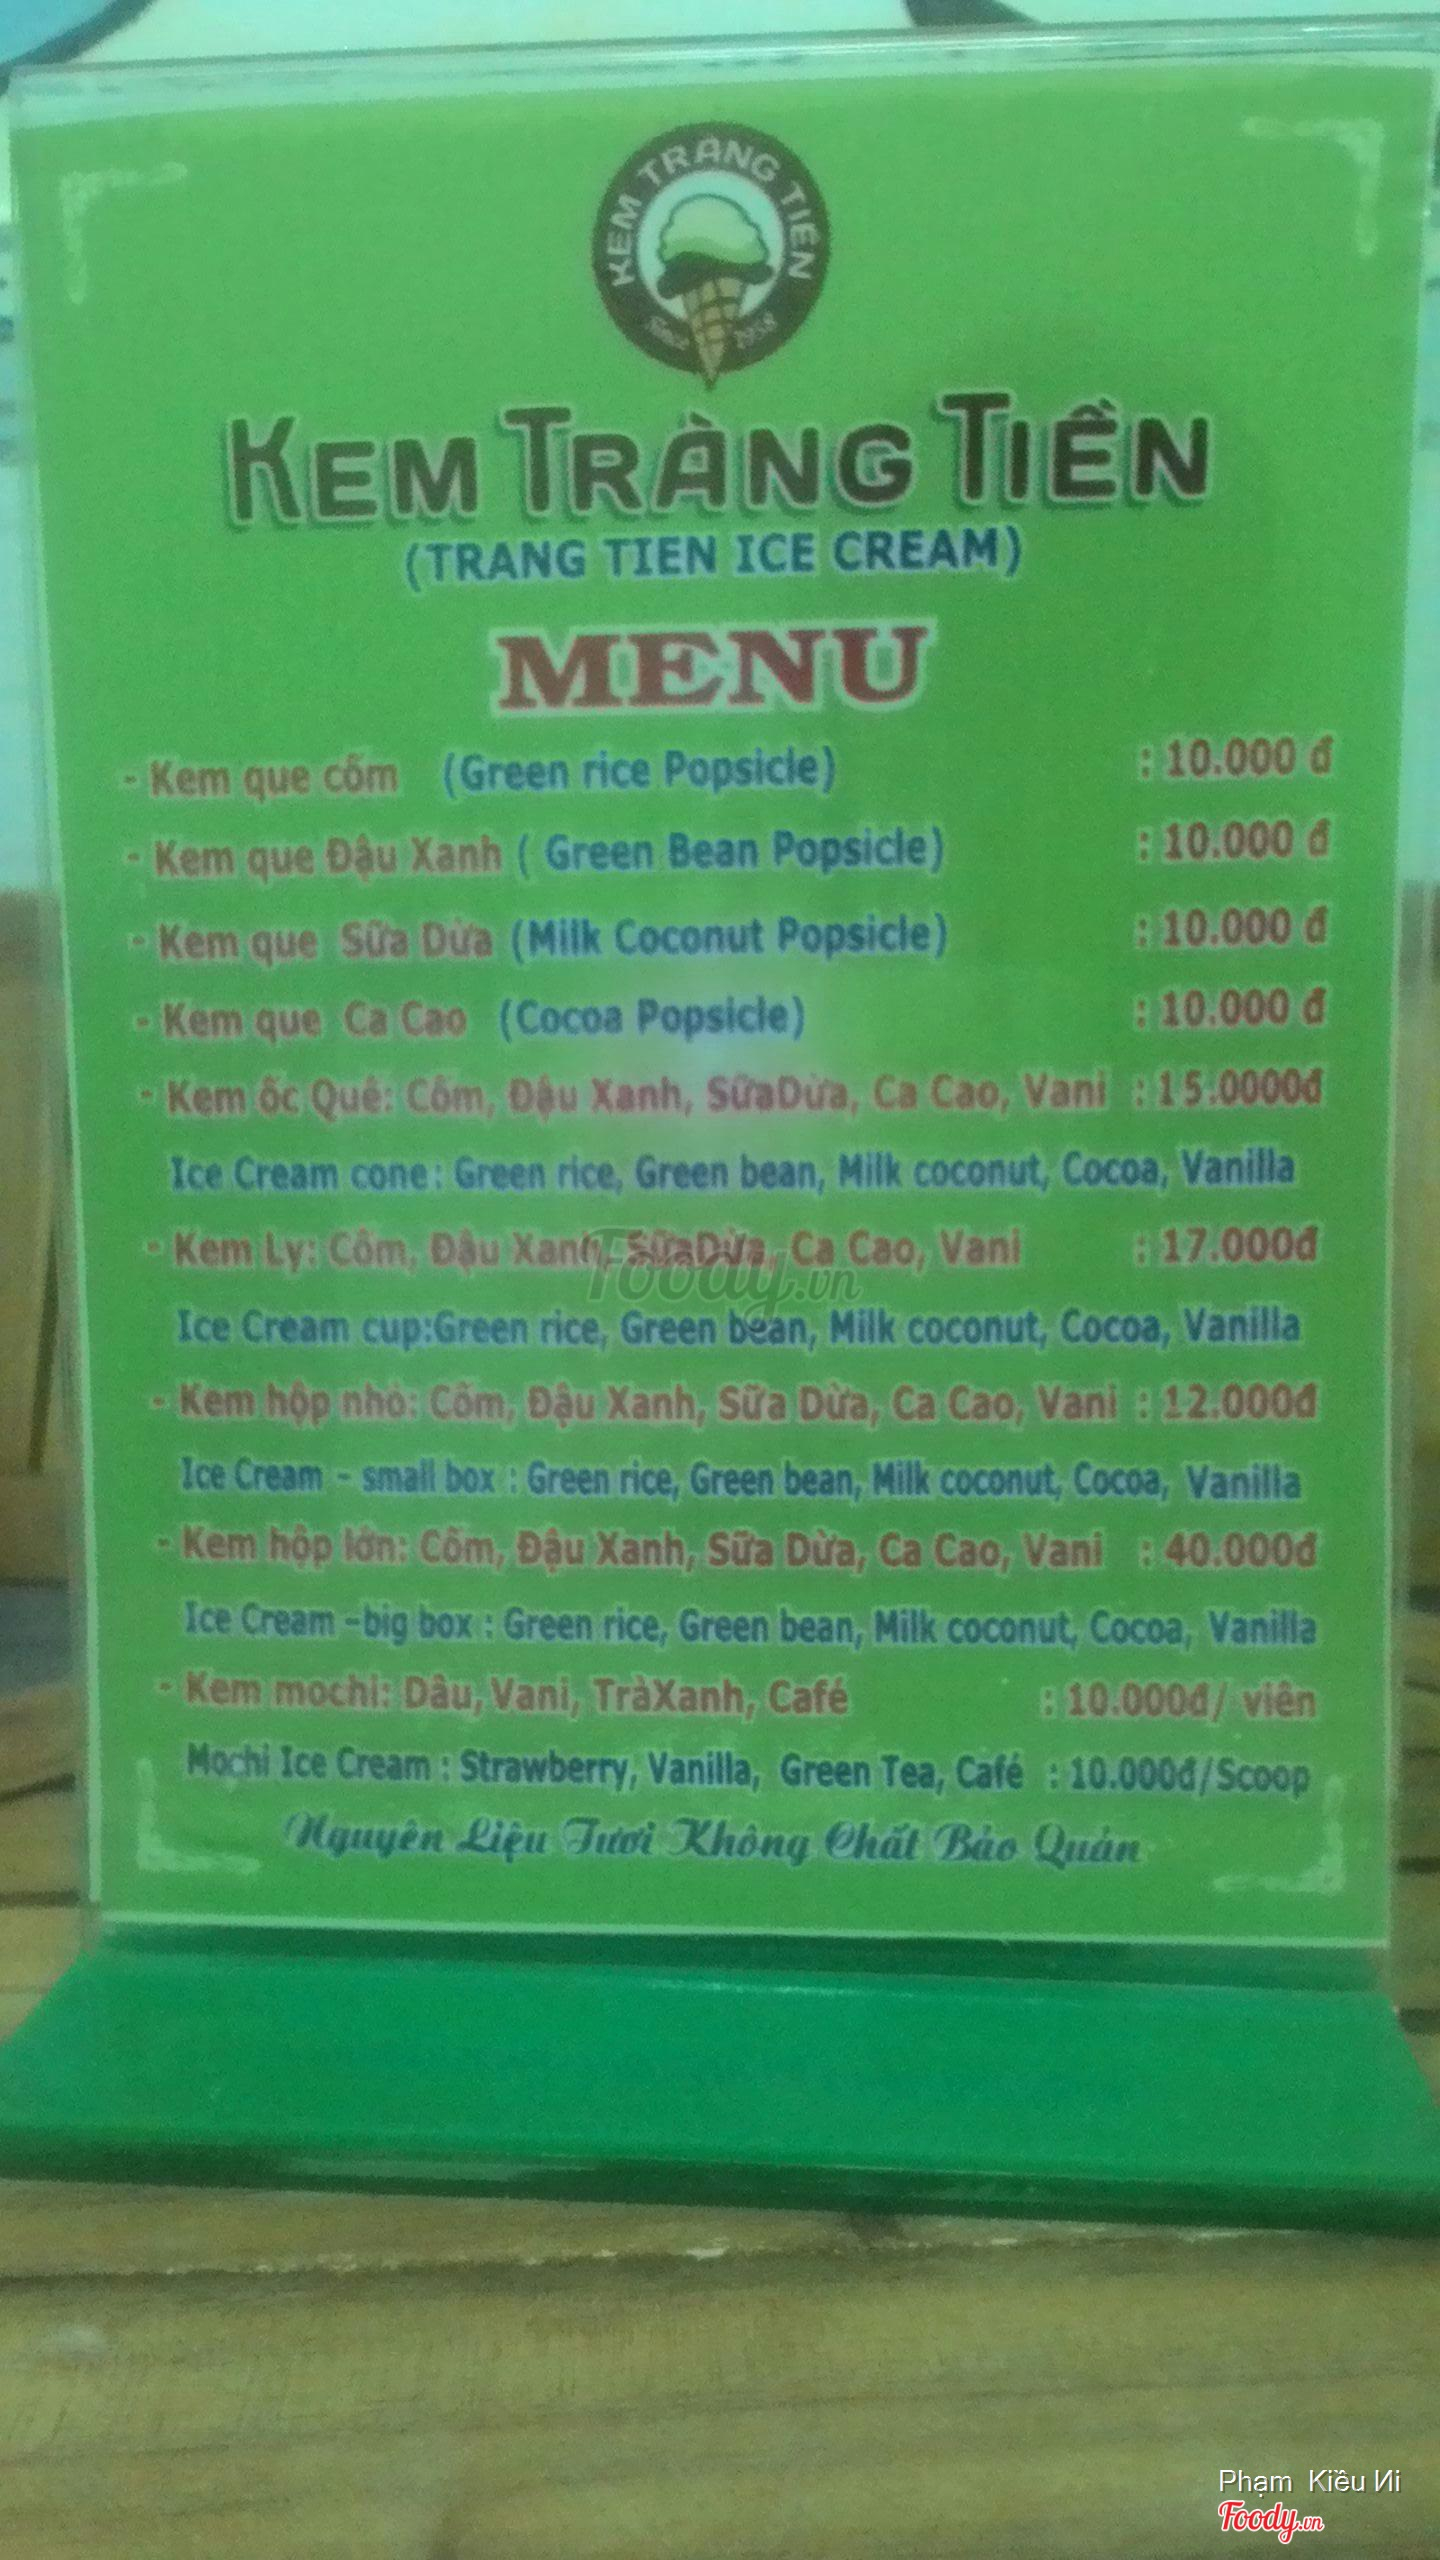 KEM TRÀNG TIỀN
Since 1958
KEM TRÀNG TIỀN
(TRANG TIEN ICE CREAM)
MENU
- Kem que cốm (Green rice Popsicle) : 10.000 đ
- Kem que Đậu Xanh ( Green Bean Popsicle) : 10.000 đ
- Kem que Sữa Dừa (Milk Coconut Popsicle) : 10.000 đ
- Kem que Ca Cao (Cocoa Popsicle) : 10.000 đ
- Kem ốc Quê: Cốm, Đậu Xanh, SữaDừa, Ca Cao, Vani : 15.0000đ
Ice Cream cone: Green rice, Green bean, Milk coconut, Cocoa, Vanilla
- Kem Ly: Cốm, Đậu Xanh, SữaDừa, Ca Cao, Vani : 17.000đ
Foody.vn
Ice Cream cup:Green rice, Green bean, Milk coconut, Cocoa, Vanilla
- Kem hộp nhỏ: Cốm, Đậu Xanh, Sữa Dừa, Ca Cao, Vani : 12.000đ
Ice Cream - small box : Green rice, Green bean, Milk coconut, Cocoa, Vanilla
- Kem hộp lớn: Cốm, Đậu Xanh, Sữa Dừa, Ca Cao, Vani : 40.000đ
Ice Cream -big box : Green rice, Green bean, Milk coconut, Cocoa, Vanilla
- Kem mochi: Dâu, Vani, TràXanh, Café : 10.000đ/ viên
Mochi Ice Cream : Strawberry, Vanilla, Green Tea, Café : 10.000đ/Scoop
Nguyên Liệu Tươi Không Chất Bảo Quản
Phạm Kiều Иi
Foody.vn